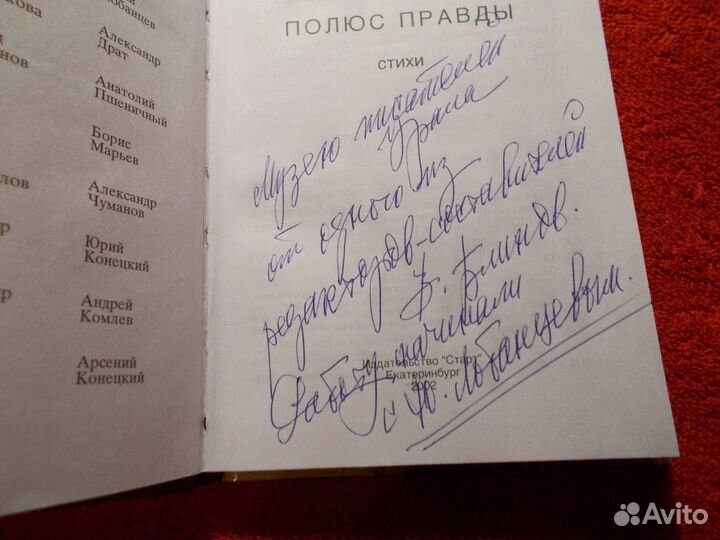 кова
нов
лов
ар
ор
Лобанцев
Александр
Драт
Анатолий
Пшеничный
Борис
Марьев
Александр
Чуманов
Юрий
Конецкий
Андрей
Комлев
Арсений
Конецкий
ПОЛЮС ПРАВДЫ
СТИХИ
Музею писателей
Урала
от одного из
редакторов-составителей
В. Блинов.
Работу начинали
с Ю. Лобанцевым.
Издательство "Старт"
Екатеринбург
2002
Avito